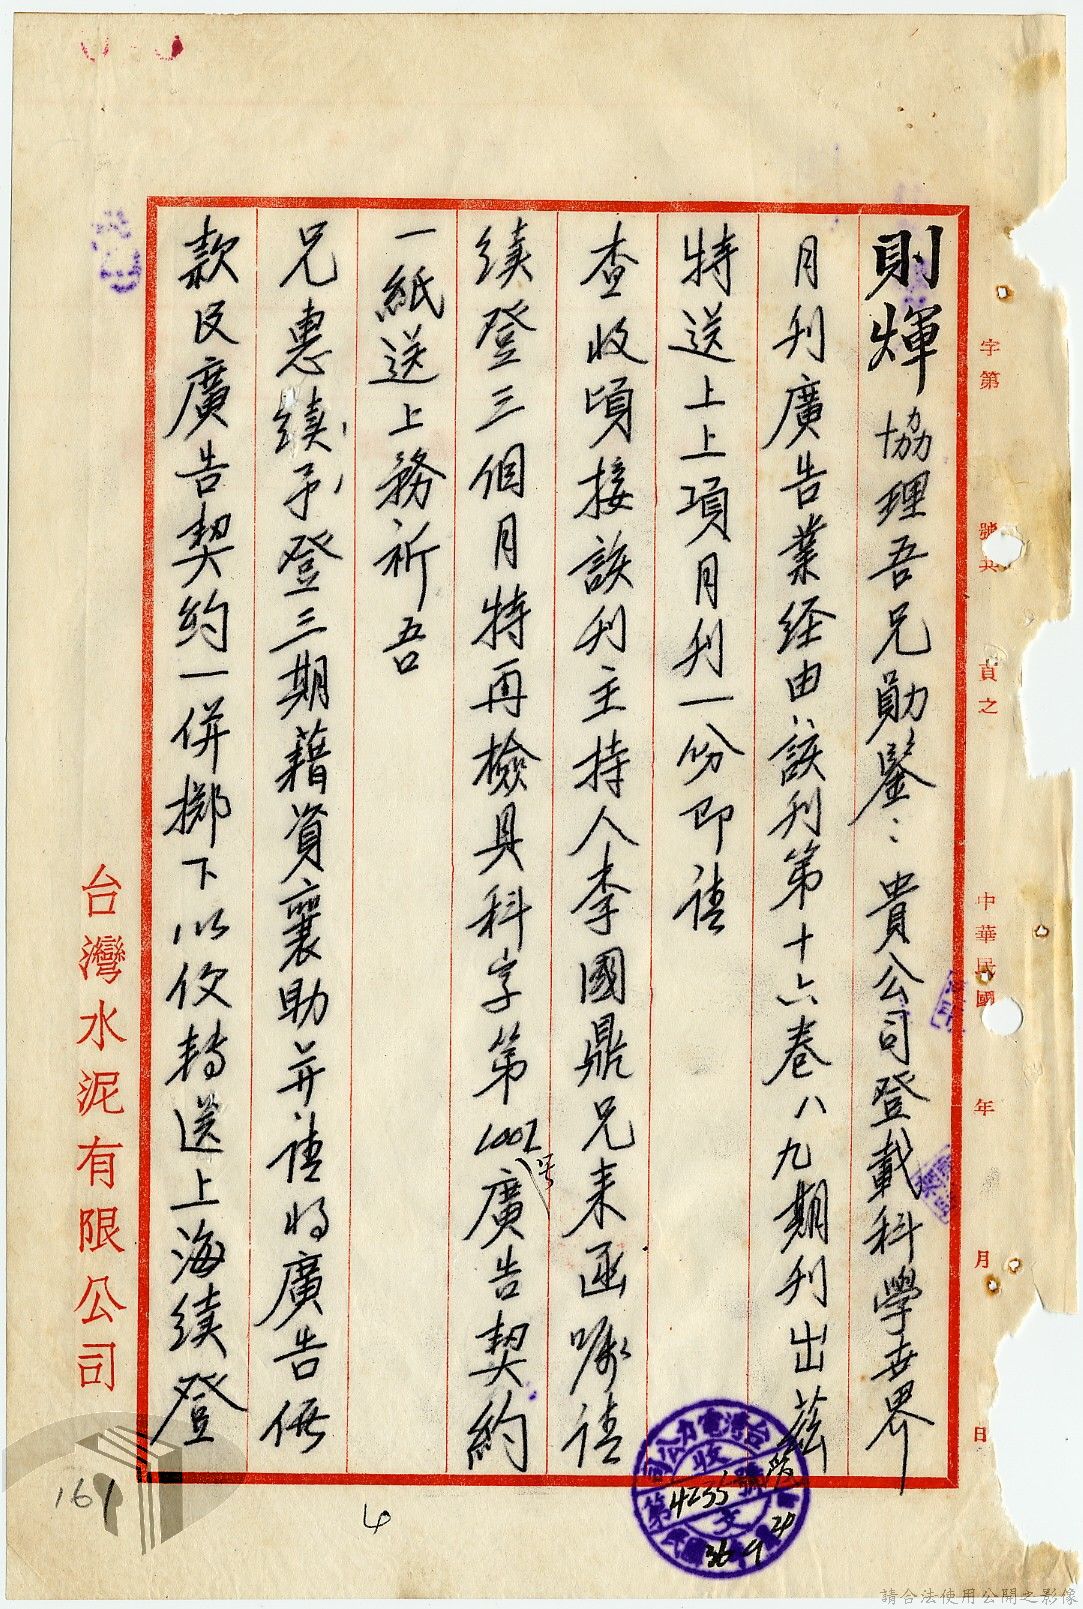 字第
號共
頁之
中華民國
年
月
日
則煇協理吾兄勛鑒：貴公司登載科學世界
月刊廣告業経由該刊第十六卷八九期刊出茲
特送上上項月刊一份即請
查收頃接該刊主持人李國鼎兄來函囑請
续登三個月特再檢具科字第1002号廣告契約
一紙送上務祈吾
兄惠续予登三期藉資襄助并請将廣告価
款及廣告契約一併擲下以便轉送上海续登
台灣水泥有限公司
台灣電力公司
收文
第4255號
民國36 9 24
161
6
請合法使用公開之影像